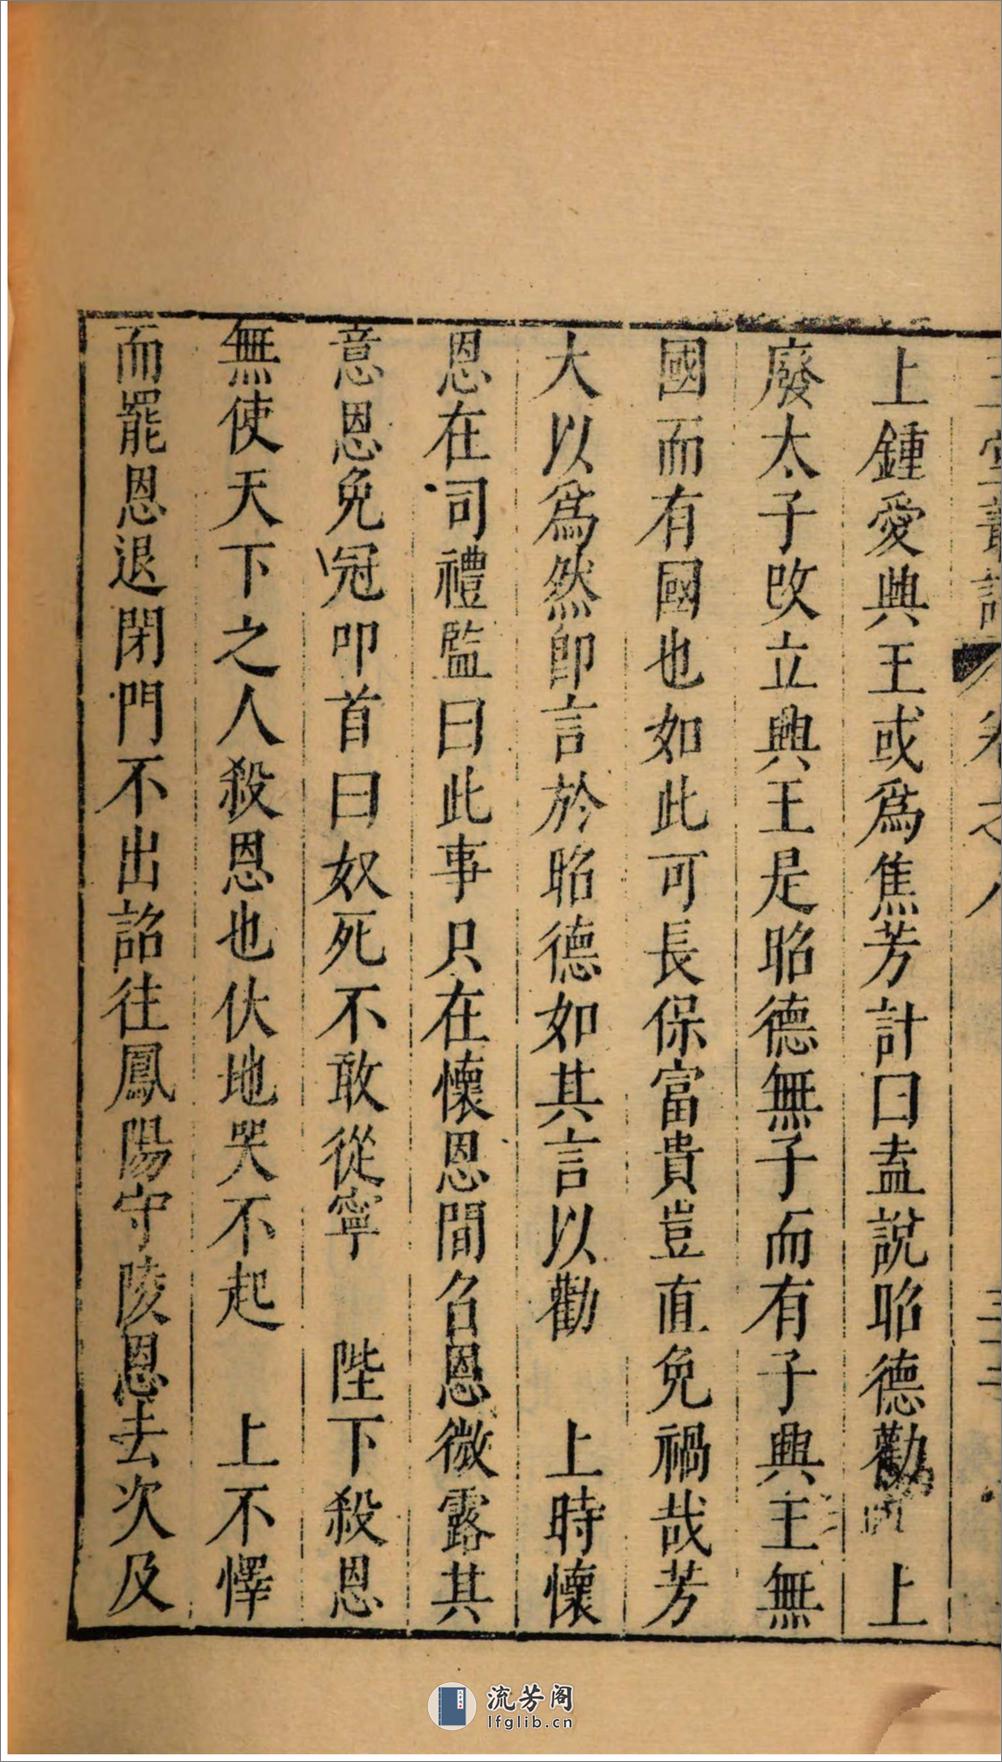 上鍾愛興王或爲焦芳計曰盍說昭德勸 上
廢太子改立興王是昭德無子而有子興王無
國而有國也如此可長保富貴豈直免禍哉芳
大以爲然卽言於昭德如其言以勸 上時懷
恩在司禮監曰此事只在懷恩間召恩微露其
意恩免冠叩首曰奴死不敢從寧 陛下殺恩
無使天下之人殺恩也伏地哭不起 上不懌
而罷恩退閉門不出詔往鳳陽守陵恩去次及
流芳阁
lfglib.cn